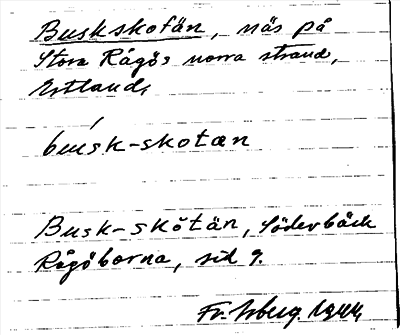 Buskskotän, näs på
Stora Rågös norra strand,
Estland.
búsk-skotæn
Busk-skŏtän, Söderbäck
Rågöborna, sid 9.
Fr. Isberg. 1944.